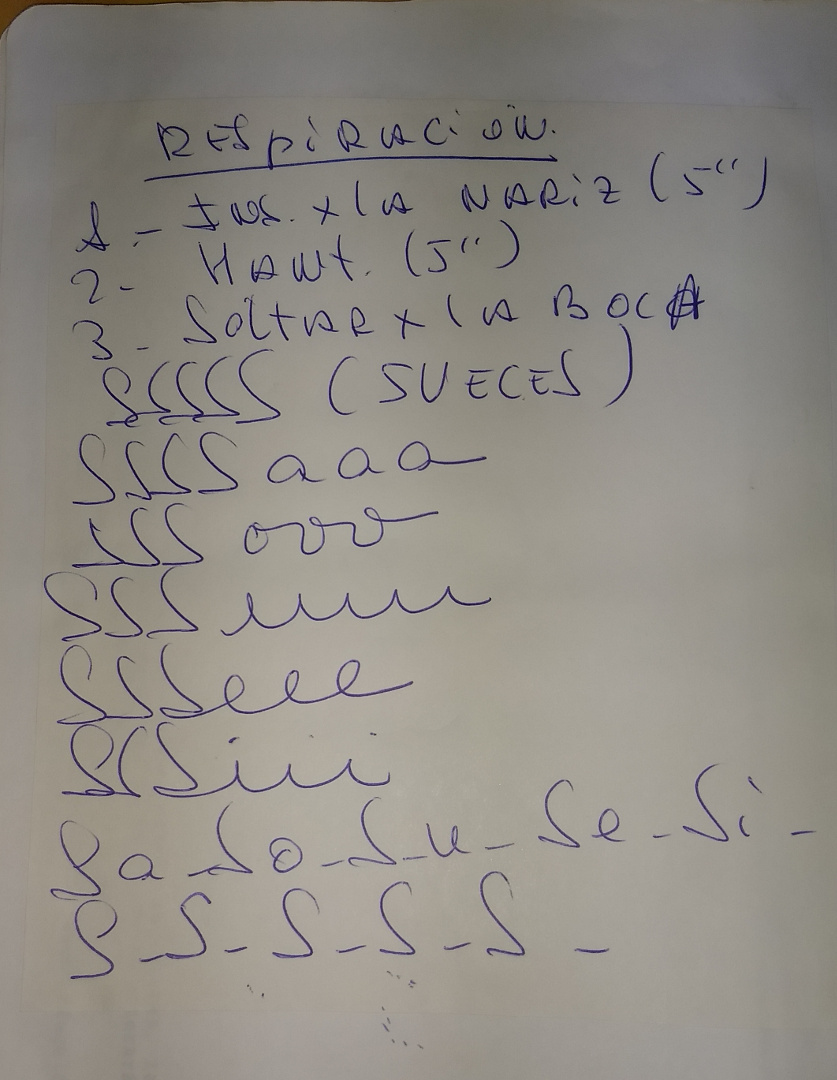 RESPIRACIÓN.
1.- INS. x LA NARIZ (5")
2- MANT. (5")
3- SOLTAR x LA BOCA
SSSSS (5 VECES)
SSSS a a a
SSS ooo
SSS uuu
SSS eee
SSS iii
Sa - So - Su - Se - Si -
S - S - S - S - S -